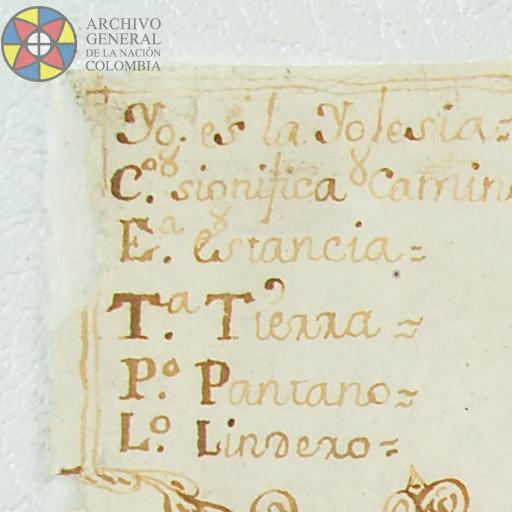 ARCHIVO
GENERAL
DE LA NACIÓN
COLOMBIA
Yg. es la Yglesia=
C.º significa Camin
E.ª Estancia=
T.ª Tierra=
P.º Pantano=
L.º Lindero=